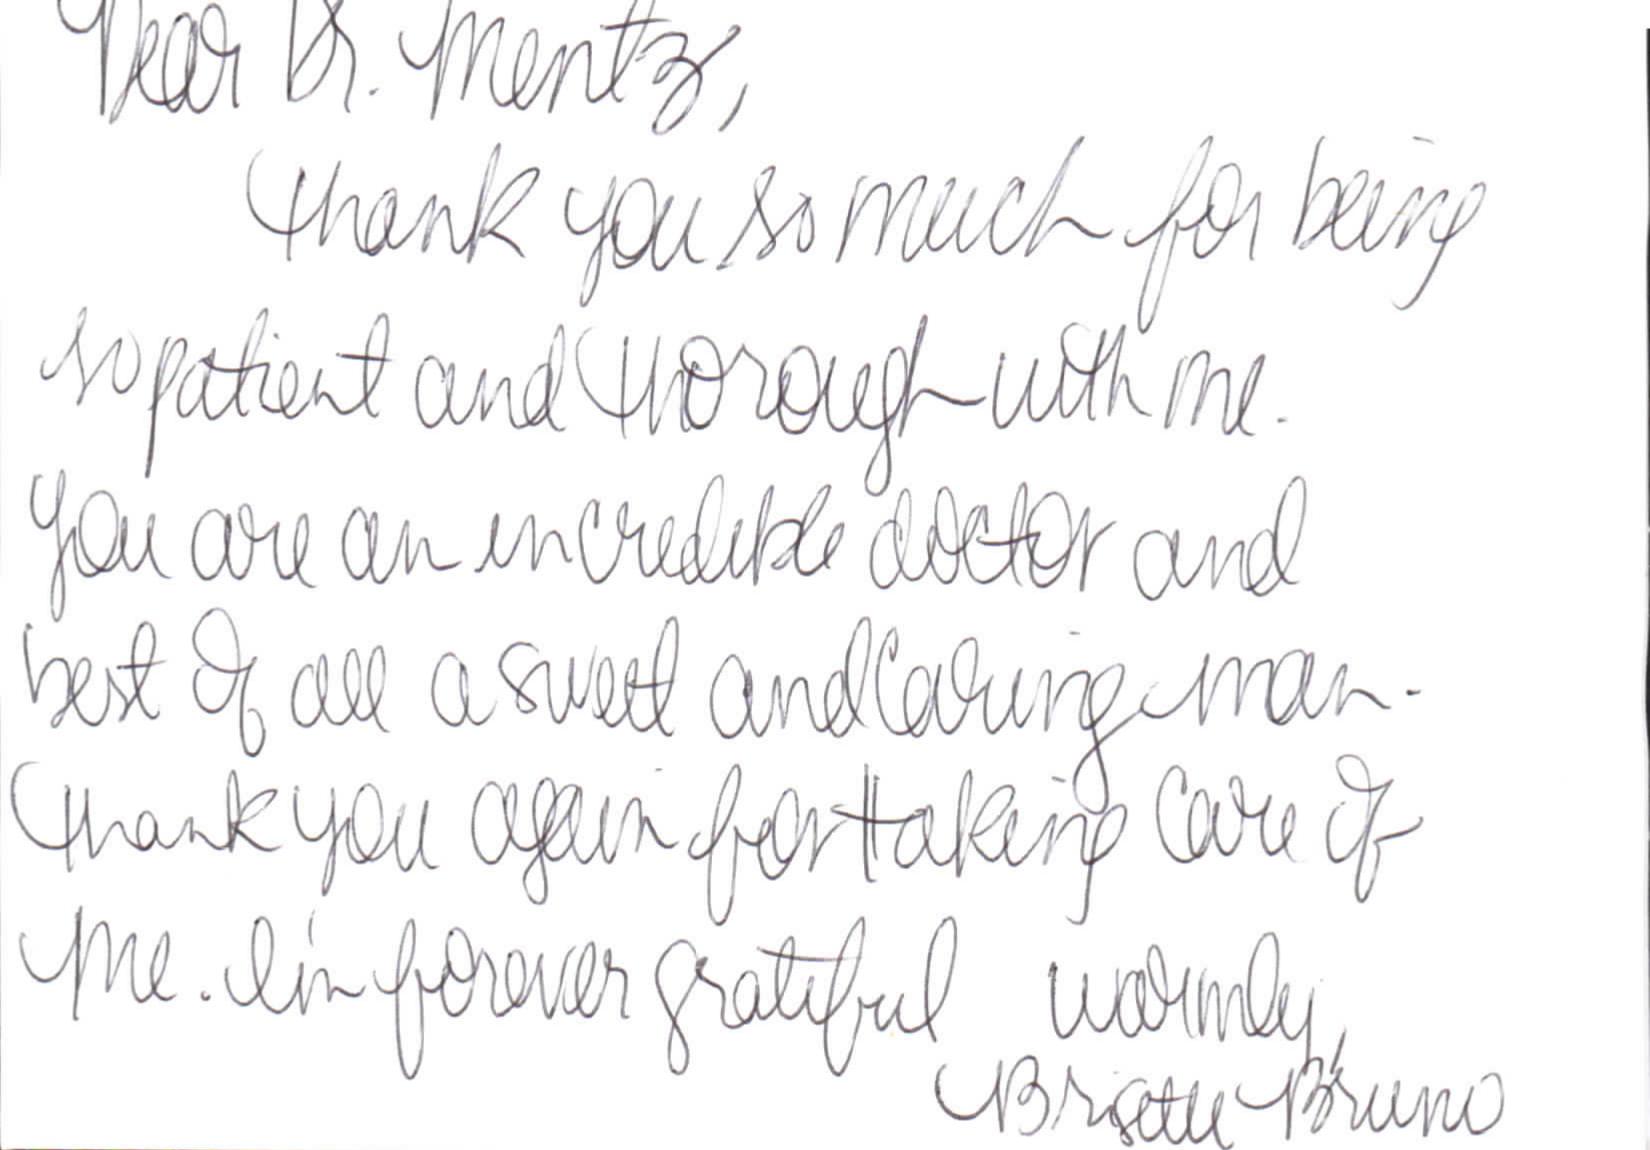 Dear Dr. Mentz,
Thank you so much for being
so patient and thorough with me.
You are an incredible doctor and
best of all a sweet and caring man.
Thank you again for taking care of
me. I'm forever grateful warmly,
Brigette Bruno